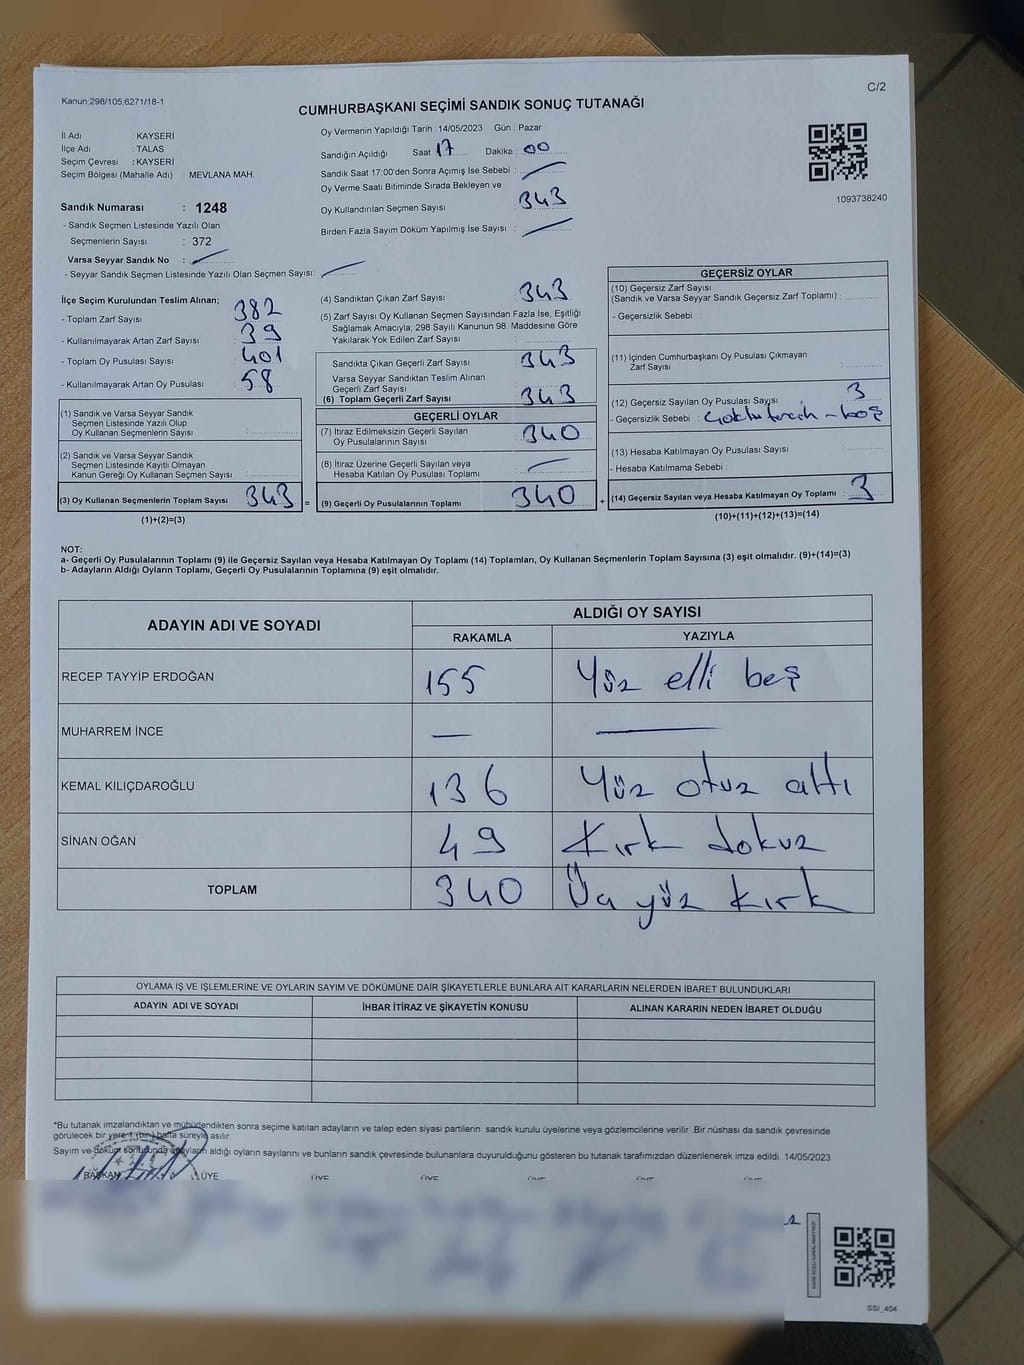 Kanun;298/105;6271/18-1
C/2
CUMHURBAŞKANI SEÇİMİ SANDIK SONUÇ TUTANAĞI
İl Adı : KAYSERİ
İlçe Adı : TALAS
Seçim Çevresi : KAYSERİ
Seçim Bölgesi (Mahalle Adı) : MEVLANA MAH.
Sandık Numarası : 1248
- Sandık Seçmen Listesinde Yazılı Olan
Seçmenlerin Sayısı : 372
Varsa Seyyar Sandık No :
- Seyyar Sandık Seçmen Listesinde Yazılı Olan Seçmen Sayısı:
Oy Vermenin Yapıldığı Tarih :14/05/2023 Gün : Pazar
Sandığın Açıldığı Saat 17 Dakika : 00
Sandık Saat 17.00'den Sonra Açımış İse Sebebi :
Oy Verme Saati Bitiminde Sırada Bekleyen ve
Oy Kullandırılan Seçmen Sayısı : 343
Birden Fazla Sayım Döküm Yapılmış İse Sayısı :
1093738240
İlçe Seçim Kurulundan Teslim Alınan;
- Toplam Zarf Sayısı : 382
- Kullanılmayarak Artan Zarf Sayısı : 39
- Toplam Oy Pusulası Sayısı : 401
- Kullanılmayarak Artan Oy Pusulası : 58
(1) Sandık ve Varsa Seyyar Sandık
Seçmen Listesinde Yazılı Olup
Oy Kullanan Seçmenlerin Sayısı :
(2) Sandık ve Varsa Seyyar Sandık
Seçmen Listesinde Kayıtlı Olmayan
Kanun Gereği Oy Kullanan Seçmen Sayısı :
(3) Oy Kullanan Seçmenlerin Toplam Sayısı : 343 =
(1)+(2)=(3)
(4) Sandıktan Çıkan Zarf Sayısı : 343
(5) Zarf Sayısı Oy Kullanan Seçmen Sayısından Fazla İse, Eşitliği
Sağlamak Amacıyla; 298 Sayılı Kanunun 98. Maddesine Göre
Yakılarak Yok Edilen Zarf Sayısı :
Sandıkta Çıkan Geçerli Zarf Sayısı : 343
Varsa Seyyar Sandıktan Teslim Alınan
Geçerli Zarf Sayısı :
(6) Toplam Geçerli Zarf Sayısı : 343
GEÇERLİ OYLAR
(7) İtiraz Edilmeksizin Geçerli Sayılan
Oy Pusulalarının Sayısı : 340
(8) İtiraz Üzerine Geçerli Sayılan veya
Hesaba Katılan Oy Pusulası Toplamı :
(9) Geçerli Oy Pusulalarının Toplamı : 340 +
GEÇERSİZ OYLAR
(10) Geçersiz Zarf Sayısı
(Sandık ve Varsa Seyyar Sandık Geçersiz Zarf Toplamı) :
- Geçersizlik Sebebi :
(11) İçinden Cumhurbaşkanı Oy Pusulası Çıkmayan
Zarf Sayısı :
(12) Geçersiz Sayılan Oy Pusulası Sayısı : 3
- Geçersizlik Sebebi : Çoklu tercih - boş
(13) Hesaba Katılmayan Oy Pusulası Sayısı :
- Hesaba Katılmama Sebebi :
(14) Geçersiz Sayılan veya Hesaba Katılmayan Oy Toplamı : 3
(10)+(11)+(12)+(13)=(14)
NOT:
a- Geçerli Oy Pusulalarının Toplamı (9) ile Geçersiz Sayılan veya Hesaba Katılmayan Oy Toplamı (14) Toplamları, Oy Kullanan Seçmenlerin Toplam Sayısına (3) eşit olmalıdır. (9)+(14)=(3)
b- Adayların Aldığı Oyların Toplamı, Geçerli Oy Pusulalarının Toplamına (9) eşit olmalıdır.
ADAYIN ADI VE SOYADI
ALDIĞI OY SAYISI
RAKAMLA YAZIYLA
RECEP TAYYİP ERDOĞAN 155 Yüz elli beş
MUHARREM İNCE — —
KEMAL KILIÇDAROĞLU 136 Yüz otuz altı
SİNAN OĞAN 49 Kırk dokuz
TOPLAM 340 Üç yüz kırk
OYLAMA İŞ VE İŞLEMLERİNE VE OYLARIN SAYIM VE DÖKÜMÜNE DAİR ŞİKAYETLERLE BUNLARA AİT KARARLARIN NELERDEN İBARET BULUNDUKLARI
ADAYIN ADI VE SOYADI İHBAR İTİRAZ VE ŞİKAYETİN KONUSU ALINAN KARARIN NEDEN İBARET OLDUĞU
*Bu tutanak imzalandıktan ve mühürlendikten sonra seçime katılan adayların ve talep eden siyasi partilerin sandık kurulu üyelerine veya gözlemcilerine verilir .Bir nüshası da sandık çevresinde
görülecek bir yere 1 (bir) hafta süreyle asılır.
Sayım ve döküm sonucunda adayların aldığı oyların sayılarını ve bunların sandık çevresinde bulunanlara duyurulduğunu gösteren bu tutanak tarafımızdan düzenlenerek imza edildi. 14/05/2023
BAŞKAN ÜYE ÜYE ÜYE ÜYE ÜYE ÜYE
SSI_404